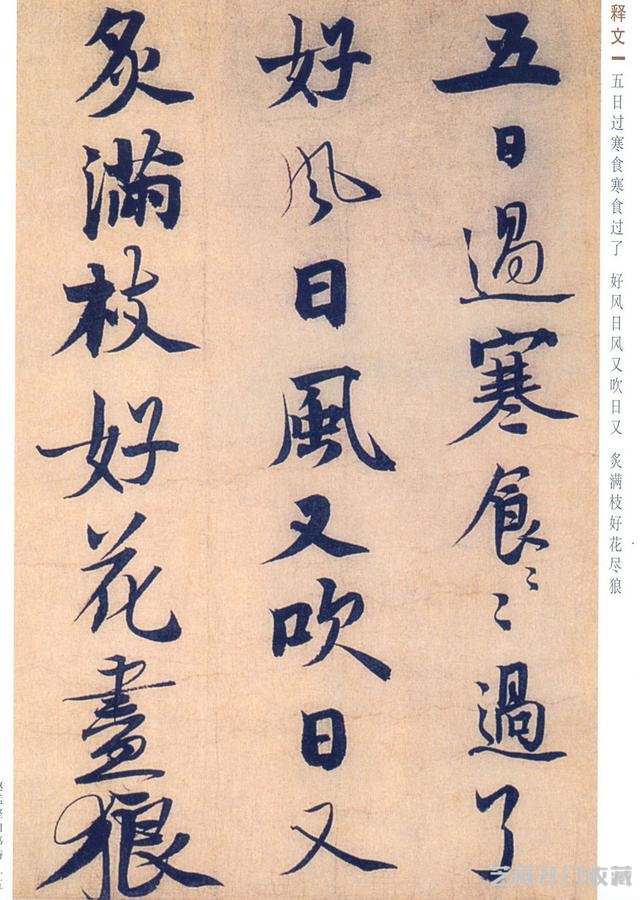 五日過寒食〻〻過了
好风日風又吹日又
炙滿枝好花盡狼
释文
五日过寒食寒食过了 好风日风又吹日又 炙满枝好花尽狼